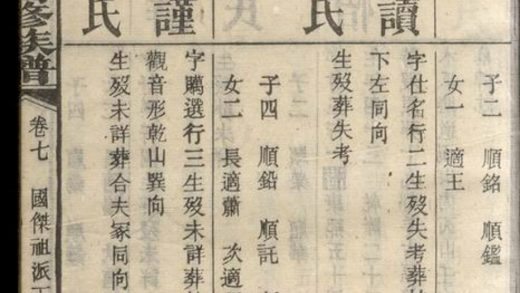 子二 順銘 順鑑
女一 適王
讀
字仕名行二生歿失考葬
下左同向
氏
生歿葬失考
子四 順鉛 順託
女二 長適蕭 次適
謹
字騰選行三生歿未詳葬
觀音形乾山巽向
氏
生歿未詳葬合夫冢同向
修族譜
卷七 國傑祖派下